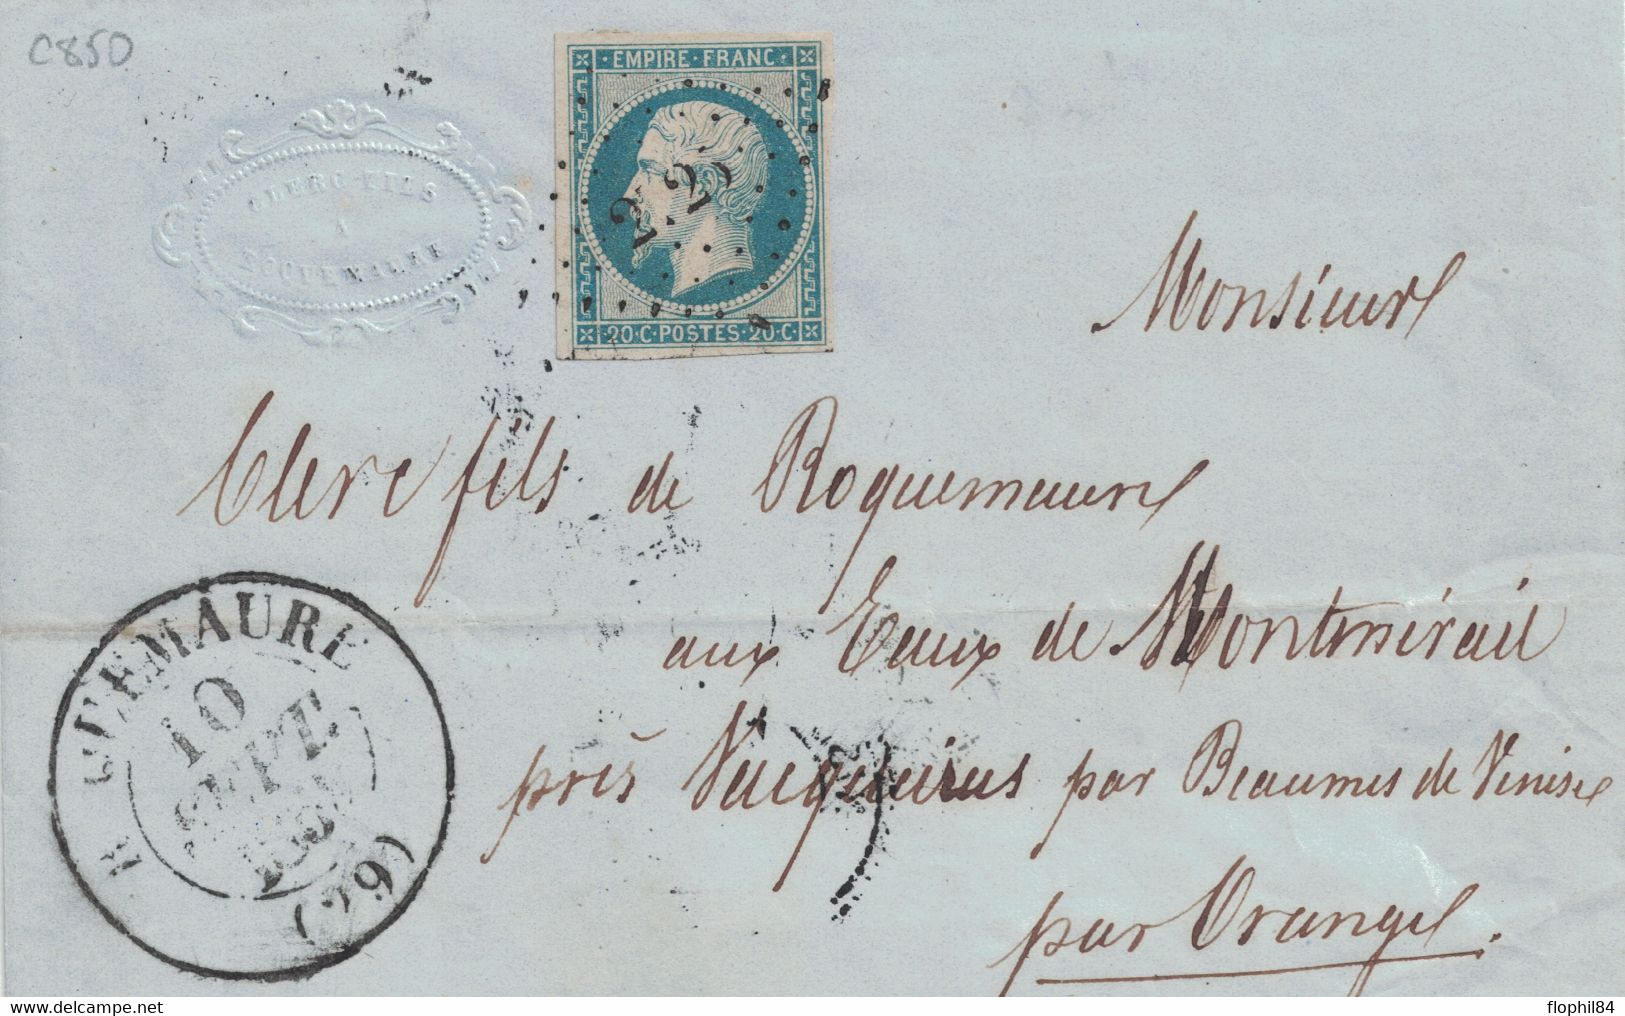 C850
CLERC FILS
A
ROQUEMAURE
EMPIRE FRANC.
20 C. POSTES 20 C.
Monsieur
Clerc fils de Roquemaure
aux Eaux de Montmirail
près Vacqueiras par Beaumes de Venise
par Orange.
R QUEMAURE
10
SEPT.
(29)
flophil84